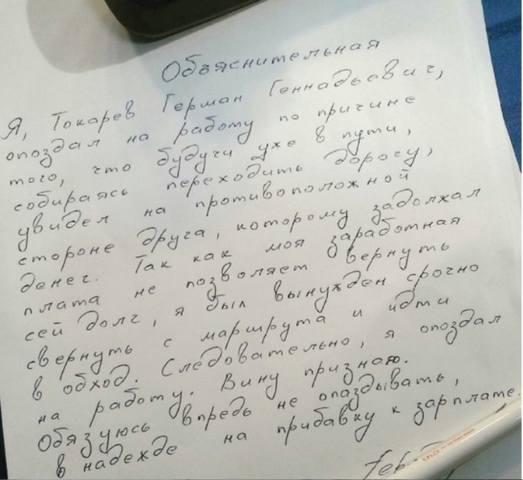 Объяснительная
Я, Токарев Герман Геннадьевич,
опоздал на работу по причине
того, что будучи уже в пути,
собираясь переходить дорогу,
увидел на противоположной
стороне друга, которому задолжал
денег. Так как моя заработная
плата не позволяет вернуть
сей долг, я был вынужден срочно
свернуть с маршрута и идти
в обход. Следовательно, я опоздал
на работу. Вину признаю.
Обязуюсь впредь не опаздывать,
в надежде на прибавку к зарплате.